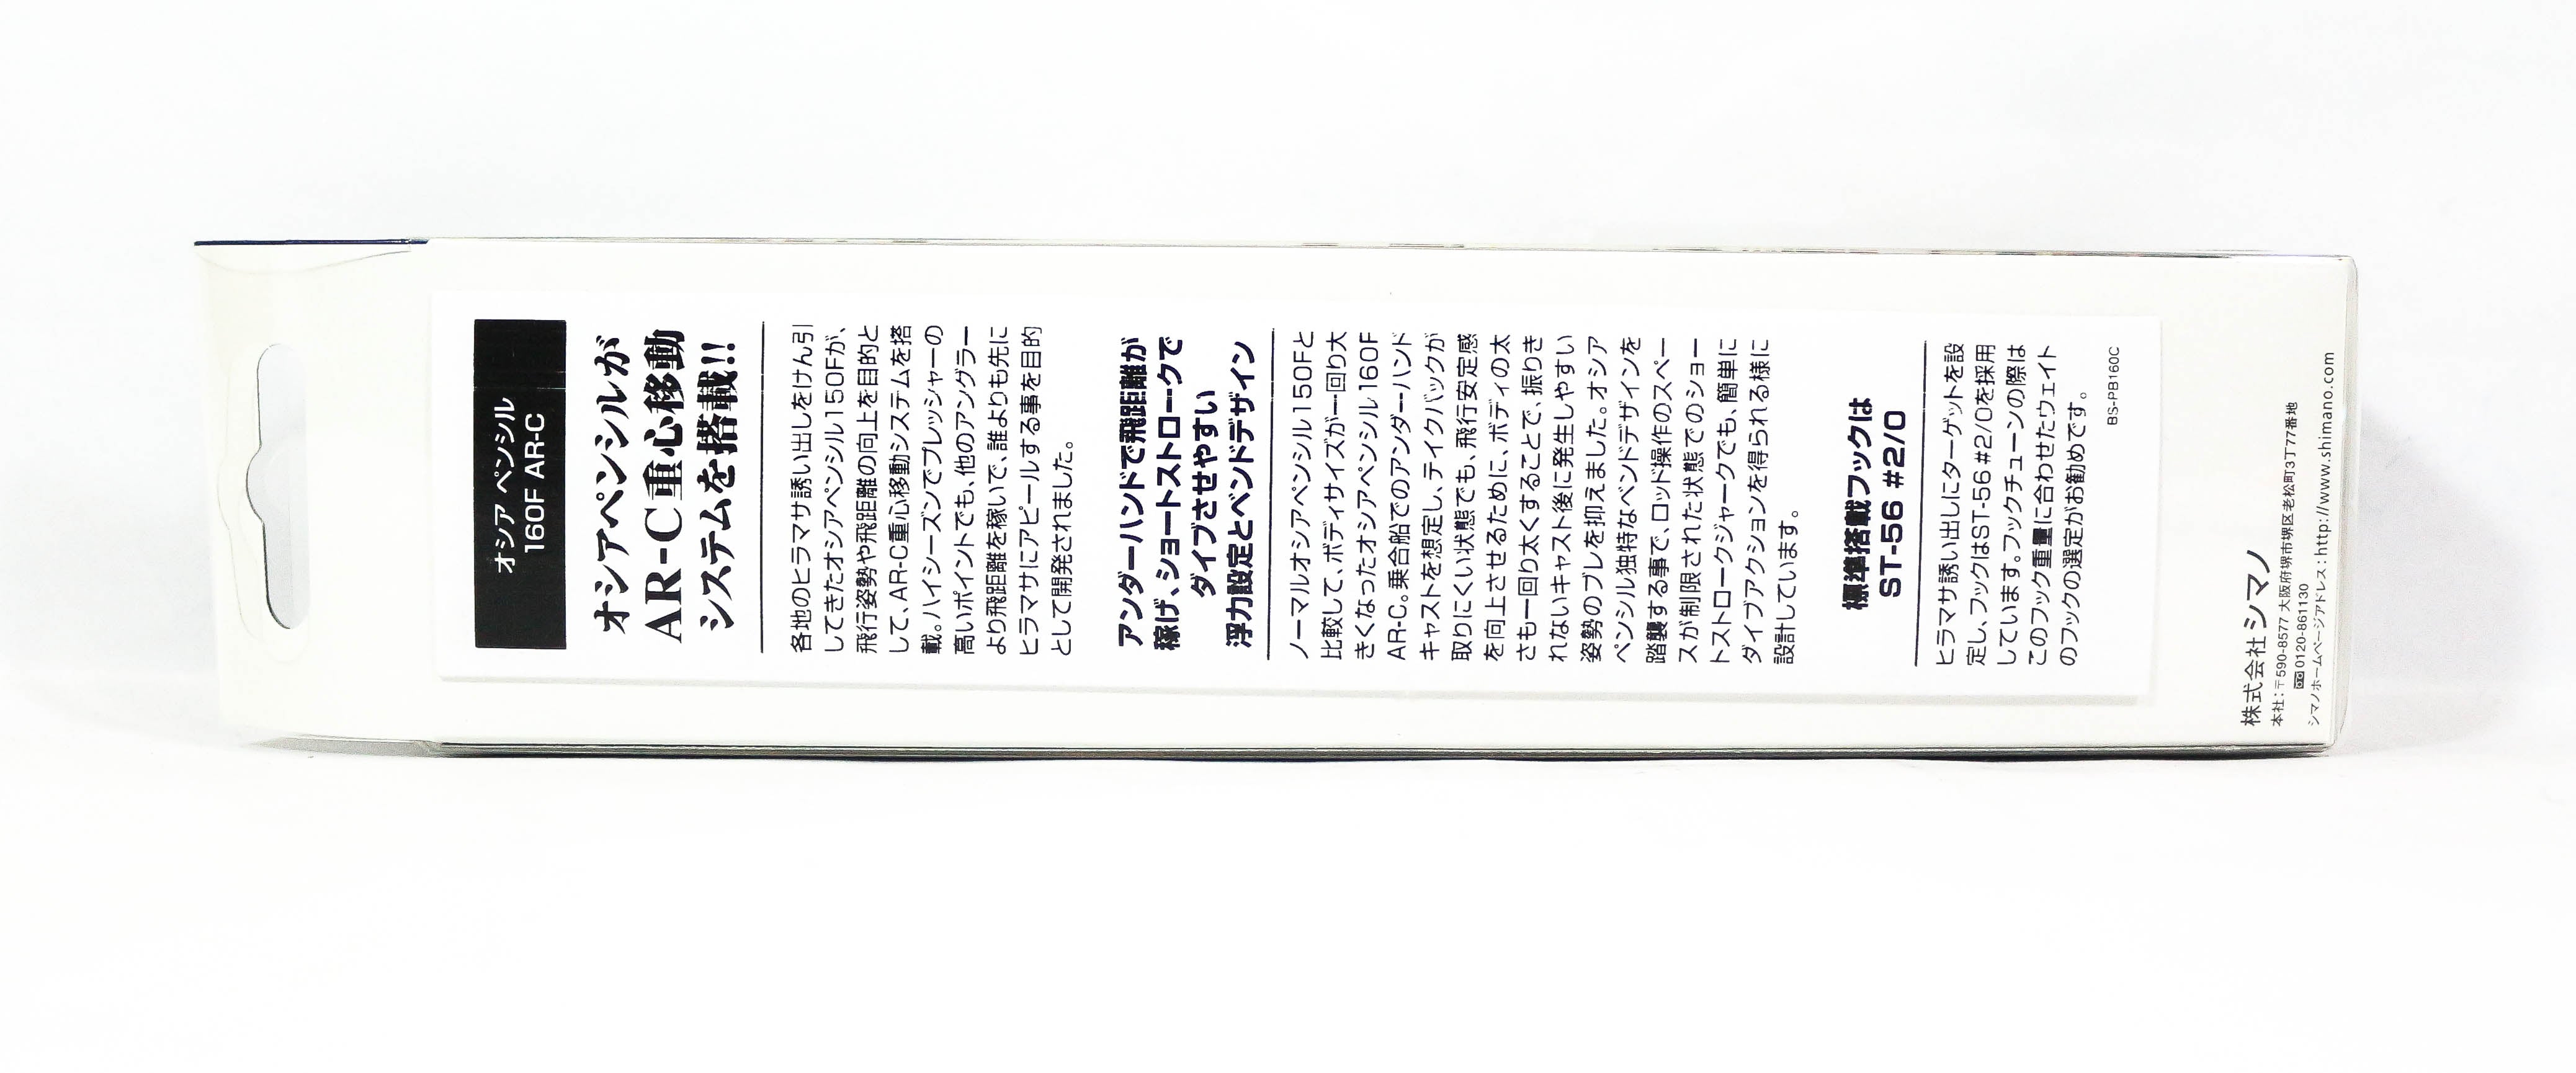 オシア ペンシル
160F AR-C
オシアペンシルが
AR-C重心移動
システムを搭載!!
各地のヒラマサ誘い出しをけん引
してきたオシアペンシル150Fが、
飛行姿勢や飛距離の向上を目的と
して、AR-C重心移動システムを搭
載。ハイシーズンでプレッシャーの
高いポイントでも、他のアングラー
より飛距離を稼いで、誰よりも先に
ヒラマサにアピールする事を目的
として開発されました。
アンダーハンドで飛距離が
稼げ、ショートストロークで
ダイブさせやすい
浮力設定とベンドデザイン
ノーマルオシアペンシル150Fと
比較して、ボディサイズが一回り大
きくなったオシアペンシル160F
AR-C。乗合船でのアンダーハンド
キャストを想定し、テイクバックが
取りにくい状態でも、飛行安定感
を向上させるために、ボディの太
さも一回り太くすることで、振りき
れないキャスト後に発生しやすい
姿勢のブレを抑えました。オシア
ペンシル独特なベンドデザインを
踏襲する事で、ロッド操作のスペー
スが制限された状態でのショー
トストロークジャークでも、簡単に
ダイブアクションを得られる様に
設計しています。
標準搭載フックは
ST-56 #2/0
ヒラマサ誘い出しにターゲットを設
定し、フックはST-56 #2/0を採用
しています。フックチューンの際は
このフック重量に合わせたウェイト
のフックの選定がお勧めです。
BS-PB160C
株式会社 シマノ
本社：〒590-8577 大阪府堺市堺区老松町3丁77番地
0120-861130
シマノホームページアドレス：http://www.shimano.com